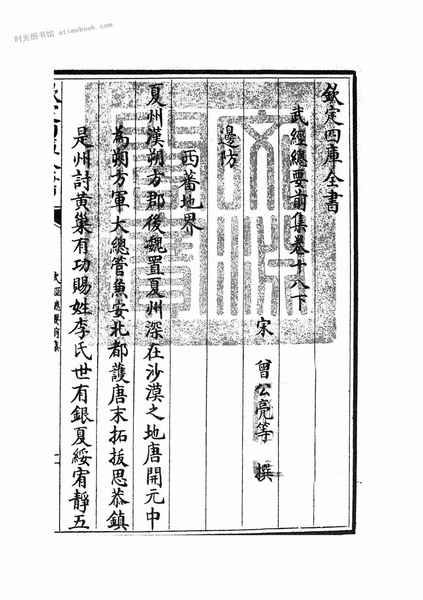 时光图书馆 stimebook.com
欽定四庫全書
武經總要前集卷十八下
宋 曾公亮等 撰
邊防
西蕃地界
夏州漢朔方郡後魏置夏州深在沙漠之地唐開元中
為朔方軍大總管兼安北都護唐末拓拔思恭鎮
是州討黃巢有功賜姓李氏世有銀夏綏宥靜五
武經總要前集